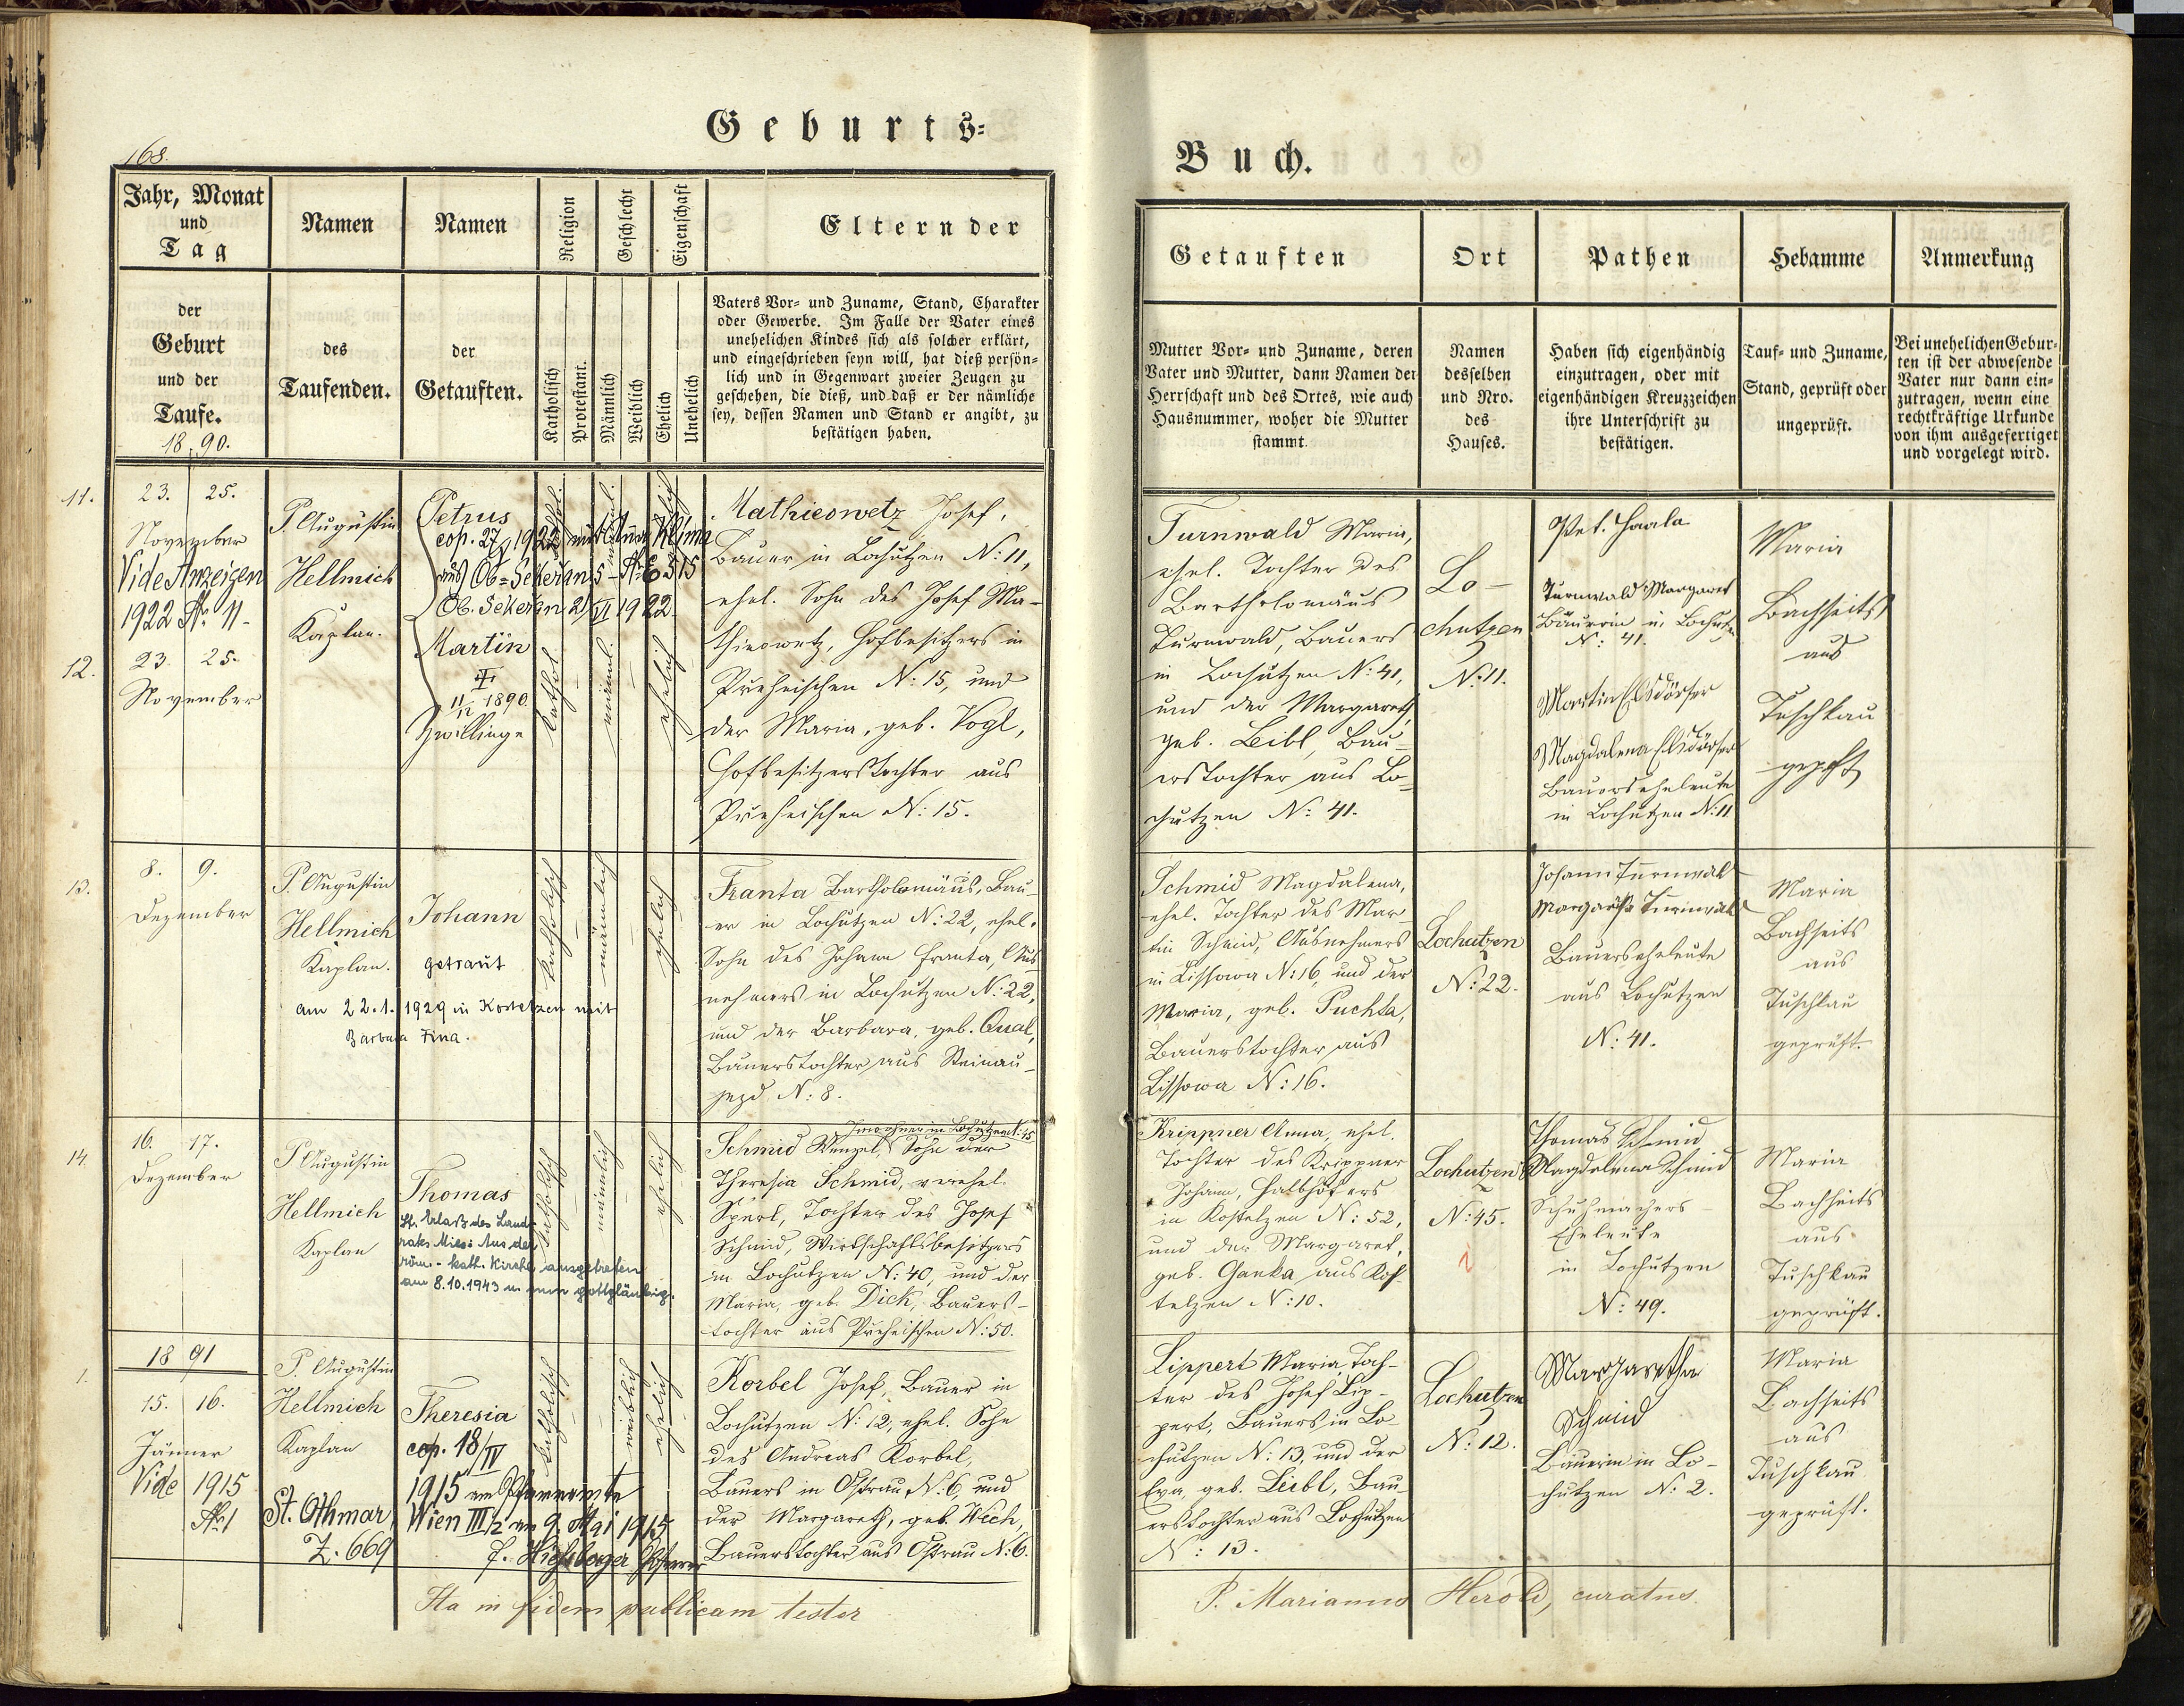 Geburts=
168.
Jahr, Monat
und
Tag
Namen
Namen
Religion
Geschlecht
Eigenschaft
Eltern der
der
Geburt
und der
Taufe.
1890.
des
Taufenden.
der
Getauften.
Katholisch
Protestant.
Männlich
Weiblich
Ehelich
Unehelich
Vaters Vor= und Zuname, Stand, Charakter
oder Gewerbe. Im Falle der Vater eines
unehelichen Kindes sich als solcher erklärt,
und eingeschrieben seyn will, hat dieß persön=
lich und in Gegenwart zweier Zeugen zu
geschehen, die dieß, und daß er der nämliche
sey, dessen Namen und Stand er angibt, zu
bestätigen haben.
11.
23. 25.
November
Vide Anzeigen
1922 No. 11.
P. Augustin
Hellmich
Kaplan.
Petrus
cop. 27/9 1922 mit Anna Klima
aus Ob=Sekeřan 5
Ob. Sekeřan 21/VI 1922.
12.
23. 25.
November
Martin
11/12 1890.
Zwillinge
kathol.
männl.
ehelich
Mathieowetz Josef,
Bauer in Lochutzen N: 11,
ehel. Sohn des Josef Ma-
thieowetz, Hofbesitzers in
Preheischen N: 15, und
der Maria, geb. Vogl,
Hofbesitzerstochter aus
Preheischen N: 15.
13.
8. 9.
Dezember
P. Augustin
Hellmich
Kaplan.
Johann
getraut
am 22.1.1929 in Kostelzen mit
Barbara Fina.
katholisch
männlich
ehelich
Franta Bartholomäus, Bau-
er in Lochutzen N: 22, ehel.
Sohn des Johann Franta, Aus-
nehmers in Lochutzen N: 22,
und der Barbara, geb. Qual,
Bauerstochter aus Steinau-
jezd N: 8.
14.
16. 17.
Dezember
P Augustin
Hellmich
Kaplan
Thomas
Lt. Erlaß des Land-
rats Mies: Aus der
röm.-kath. Kirche ausgetreten
am 8.10.1943 u. nun gottgläubig.
katholisch
männlich
ehelich
Inwohner in Lochutzen N: 45
Schmid Wenzel, Sohn der
Theresia Schmid, verehel.
Sperl, Tochter des Josef
Schmid, Wirtschaftsbesitzers
in Lochutzen N: 40, und der
Maria, geb. Dick, Bauers-
tochter aus Preheischen N: 50.
1.
1891
15. 16.
Jänner
Vide 1915
No. 1
P. Augustin
Hellmich
Kaplan
Theresia
cop. 18/IV
1915 am Pfarramte
St. Othmar, Wien III/2 am 9. Mai 1915
Z. 669
Pfarrer
katholisch
weiblich
ehelich
Korbel Josef, Bauer in
Lochutzen N: 12, ehel. Sohn
des Andreas Korbel,
Bauers in Ostrau N: 6, und
der Margareth, geb. Wech,
Bauerstochter aus Ostrau N: 6.
Ita in fidem publicam testor
Buch.
Getauften
Ort
Pathen
Hebamme
Anmerkung
Mutter Vor= und Zuname, deren
Vater und Mutter, dann Namen der
Herrschaft und des Ortes, wie auch
Hausnummer, woher die Mutter
stammt.
Namen
desselben
und Nro.
des
Hauses.
Haben sich eigenhändig
einzutragen, oder mit
eigenhändigen Kreuzzeichen
ihre Unterschrift zu
bestätigen.
Tauf= und Zuname,
Stand, geprüft oder
ungeprüft.
Bei unehelichen Gebur=
ten ist der abwesende
Vater nur dann ein=
zutragen, wenn eine
rechtkräftige Urkunde
von ihm ausgefertiget
und vorgelegt wird.
Turnwald Maria,
ehel. Tochter des
Bartholomäus
Turnwald, Bauers
in Lochutzen N: 41,
und der Margareth,
geb. Leibl, Bau-
erstochter aus Lo-
chutzen N: 41.
Lo-
chutzen
N: 11.
Pet. Haala
Turnwald Margaret
Bäuerin in Lochutzen
N: 41.
Martin Elsdörfer
Magdalena Elsdörfer
Bauerseheleute
in Lochutzen N: 11
Maria
Bachheits
aus
Tuschkau
gepft
Schmid Magdalena,
ehel. Tochter des Mar-
tin Schmid, Ausnehmers
in Lissowa N: 16, und der
Maria, geb. Puchta,
Bauerstochter aus
Lissowa N: 16.
Lochutzen
N: 22.
Johann Turnwald
Margaretha Turnwald
Bauerseheleute
aus Lochutzen
N: 41.
Maria
Bachheits
aus
Tuschkau
geprüft.
Krippner Anna, ehel.
Tochter des Krippner
Johann, Halbhöfers
in Kostelzen N: 52,
und der Margaret,
geb. Ganka aus Kos-
telzen N: 10.
Lochutzen
N: 45.
Thomas Schmid
Magdalena Schmid
Schuhmachers-
Eheleute
in Lochutzen
N: 49.
Maria
Bachheits
aus
Tuschkau
geprüft.
Lippert Maria, Toch-
ter des Josef Lip-
pert, Bauers in Lo-
chutzen N: 13, und der
Eva, geb. Leibl, Bau-
erstochter aus Lochutzen
N: 13.
Lochutzen
N: 12.
Margaretha
Schmid
Bäuerin in Lo-
chutzen N: 2.
Maria
Bachheits
aus
Tuschkau
geprüft.
P. Marianus Herold, curatus.